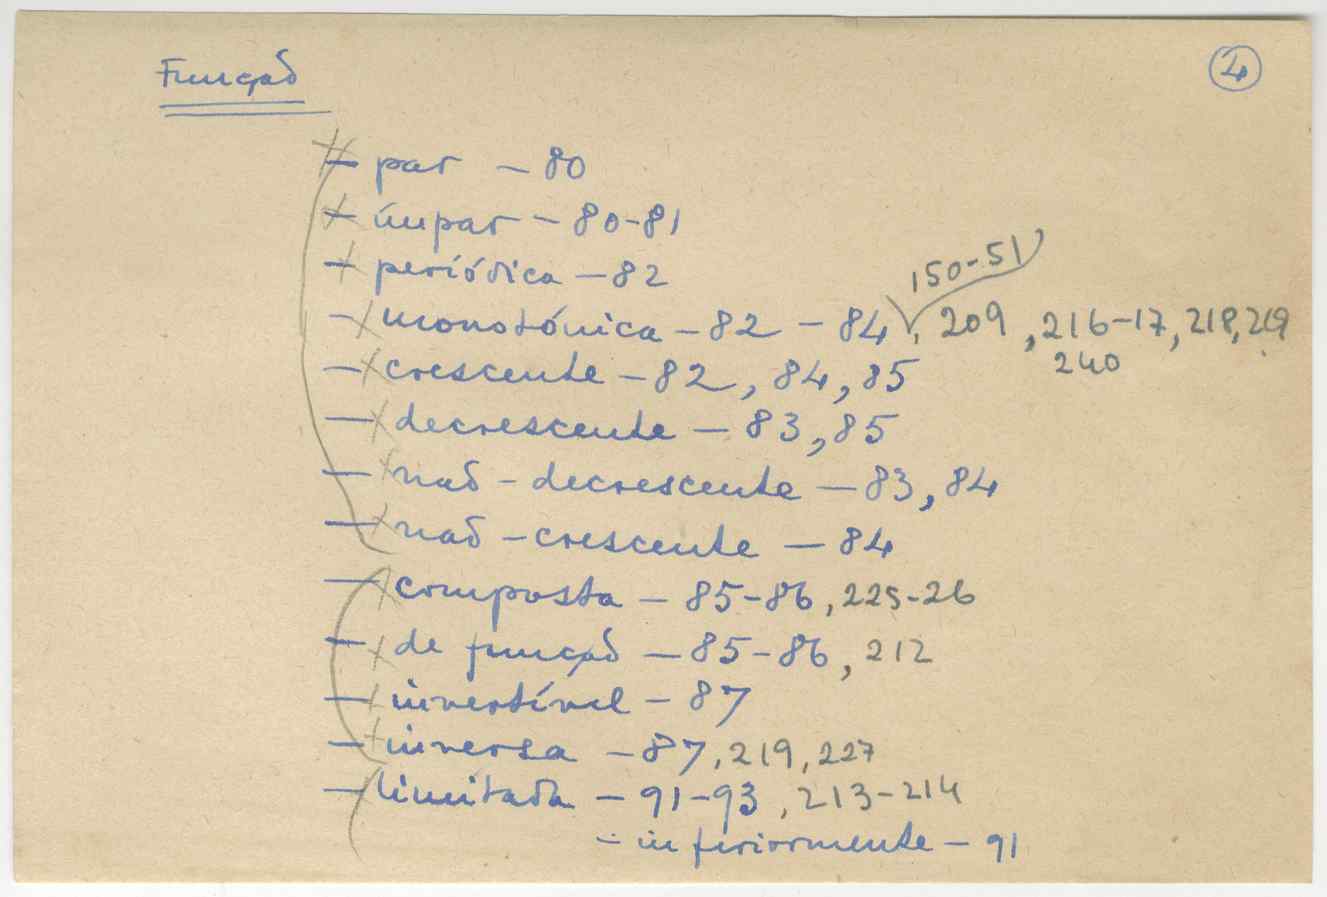 Função 4
- par - 80
- ímpar - 80-81
- periódica - 82
150-51
- monotónica - 82 - 84, 209, 216-17, 218, 219
240
- crescente - 82, 84, 85
- decrescente - 83, 85
- não-decrescente - 83, 84
- não-crescente - 84
- composta - 85-86, 225-26
- de função - 85-86, 212
- invertível - 87
- inversa - 87, 219, 227
- limitada - 91-93, 213-214
- inferiormente - 91